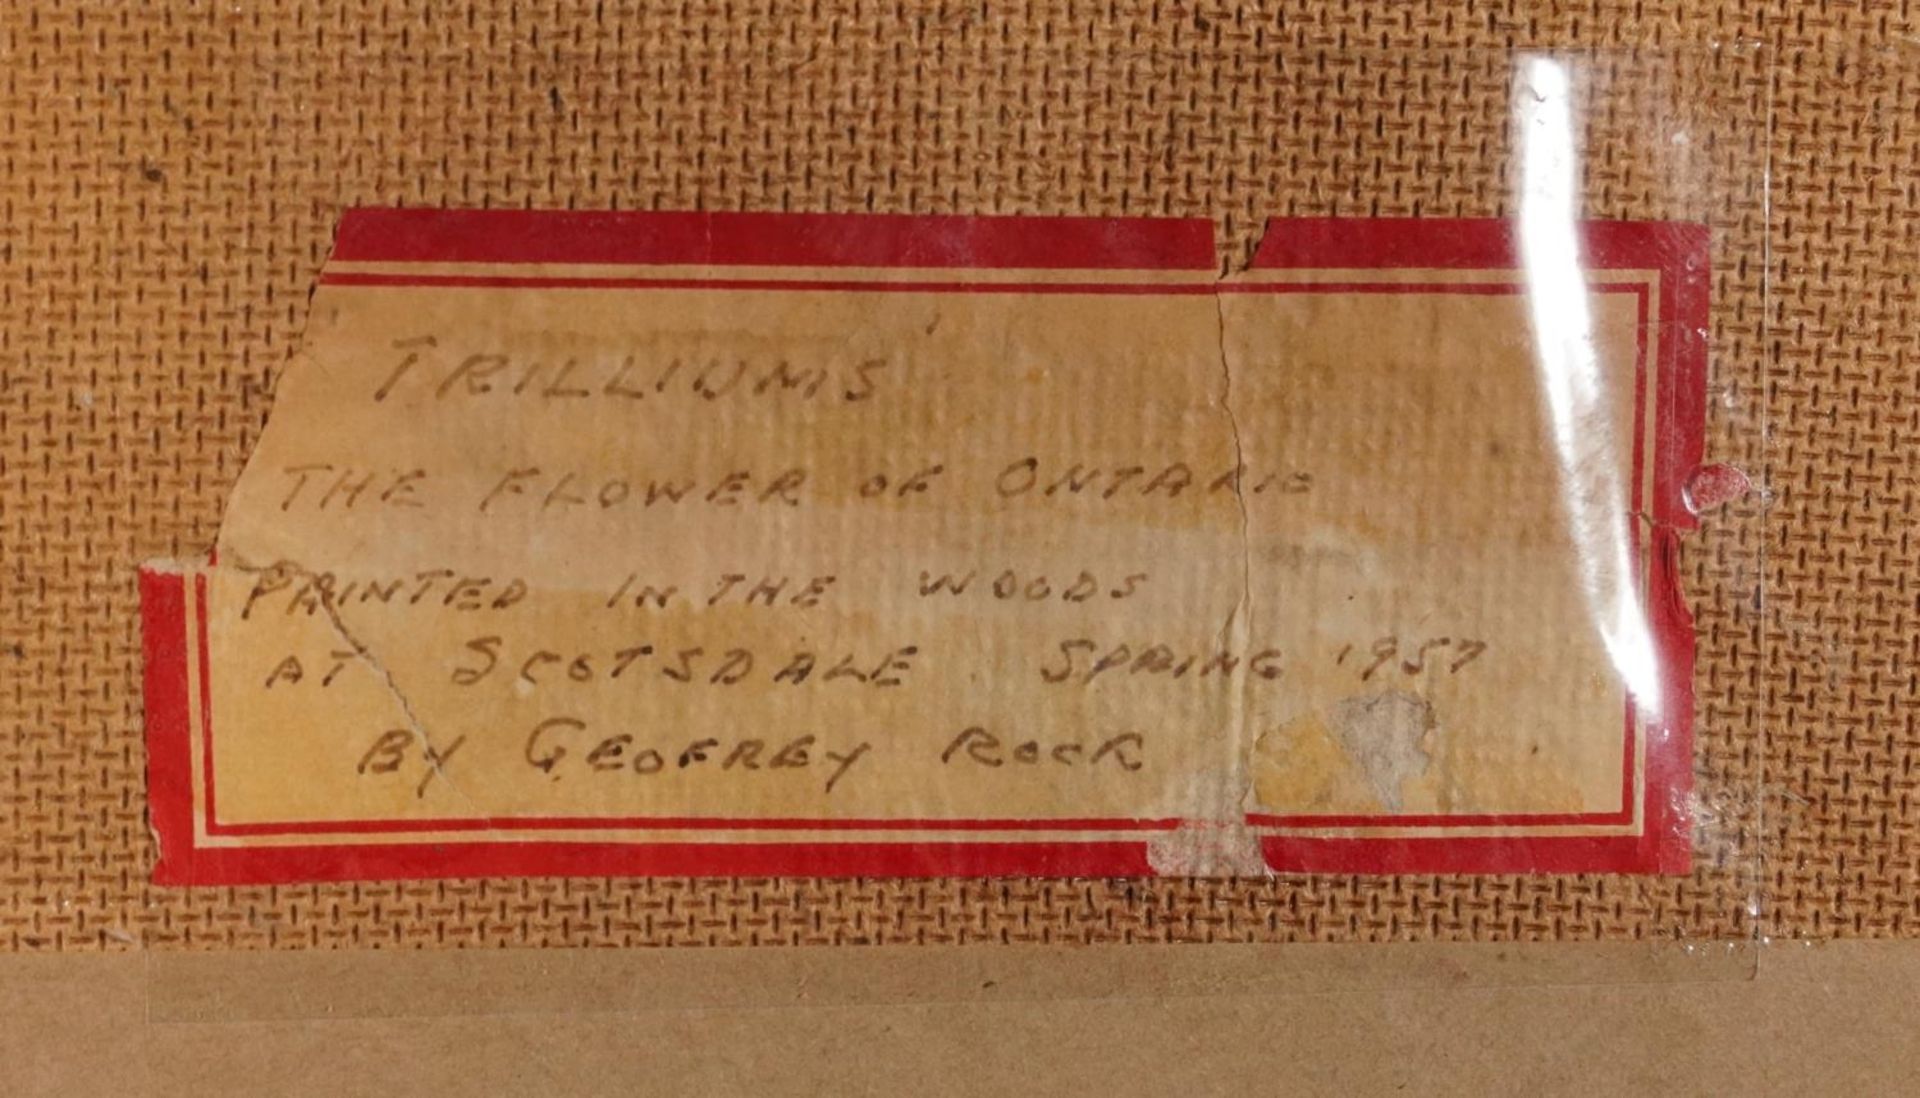 TRILLIUMS
THE FLOWER OF ONTARIO
PAINTED IN THE WOODS
AT SCOTSDALE. SPRING 1957
BY GEOFREY ROCK